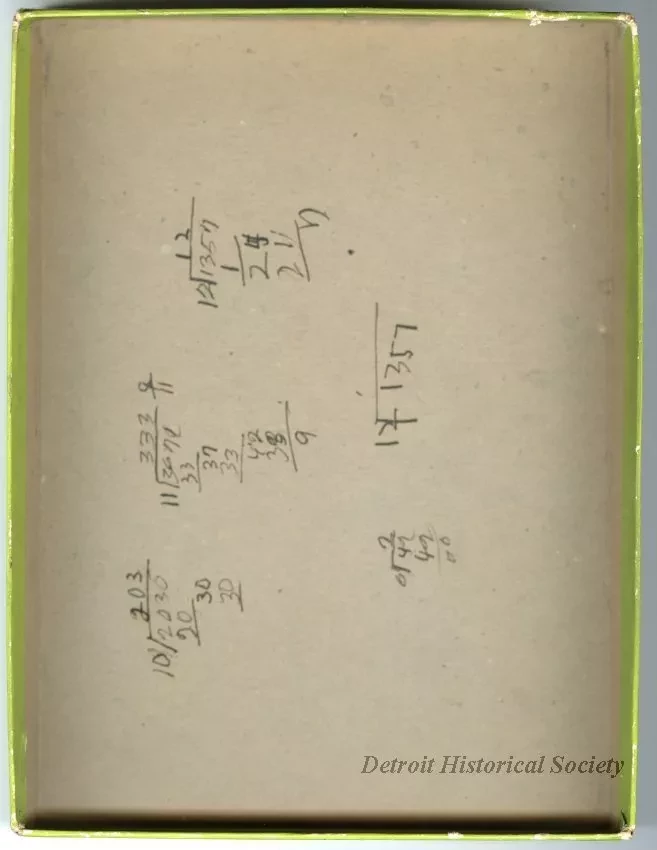 203
10/2030
20
30
30
333 9/11
11/3672
33
37
33
42
33
9
12
12/1357
1
2
2 11
17 1357
42
00
Detroit Historical Society